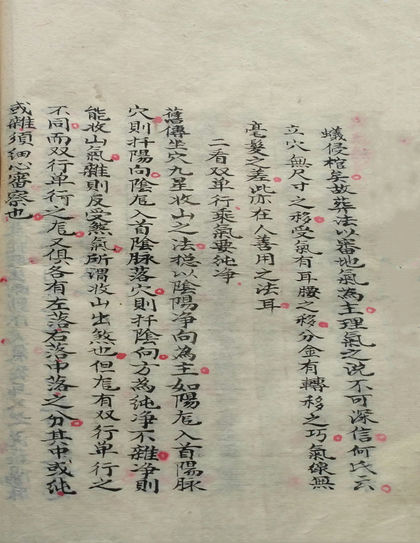 蟻侵棺矣故葬法以審地氣為主理氣之說不可深信何氏云
立穴無尺寸之移受氣有耳腰之移分金有轉移之巧氣線無
毫髮之差此亦在人善用之法耳
二看双单行乘氣要纯净
舊傳坐穴九星收山之法總以陰陽净向為主如陽龙入首陽脉
穴則扦陽向陰龙入首陰脉落穴則扦陰向方為純净不雜净則
能收山氣雜則反受煞氣所謂收山出煞也但龙有双行单行之
不同而双行单行之龙又俱各有左落右落中落之分其中或純
或雜須細心審察也